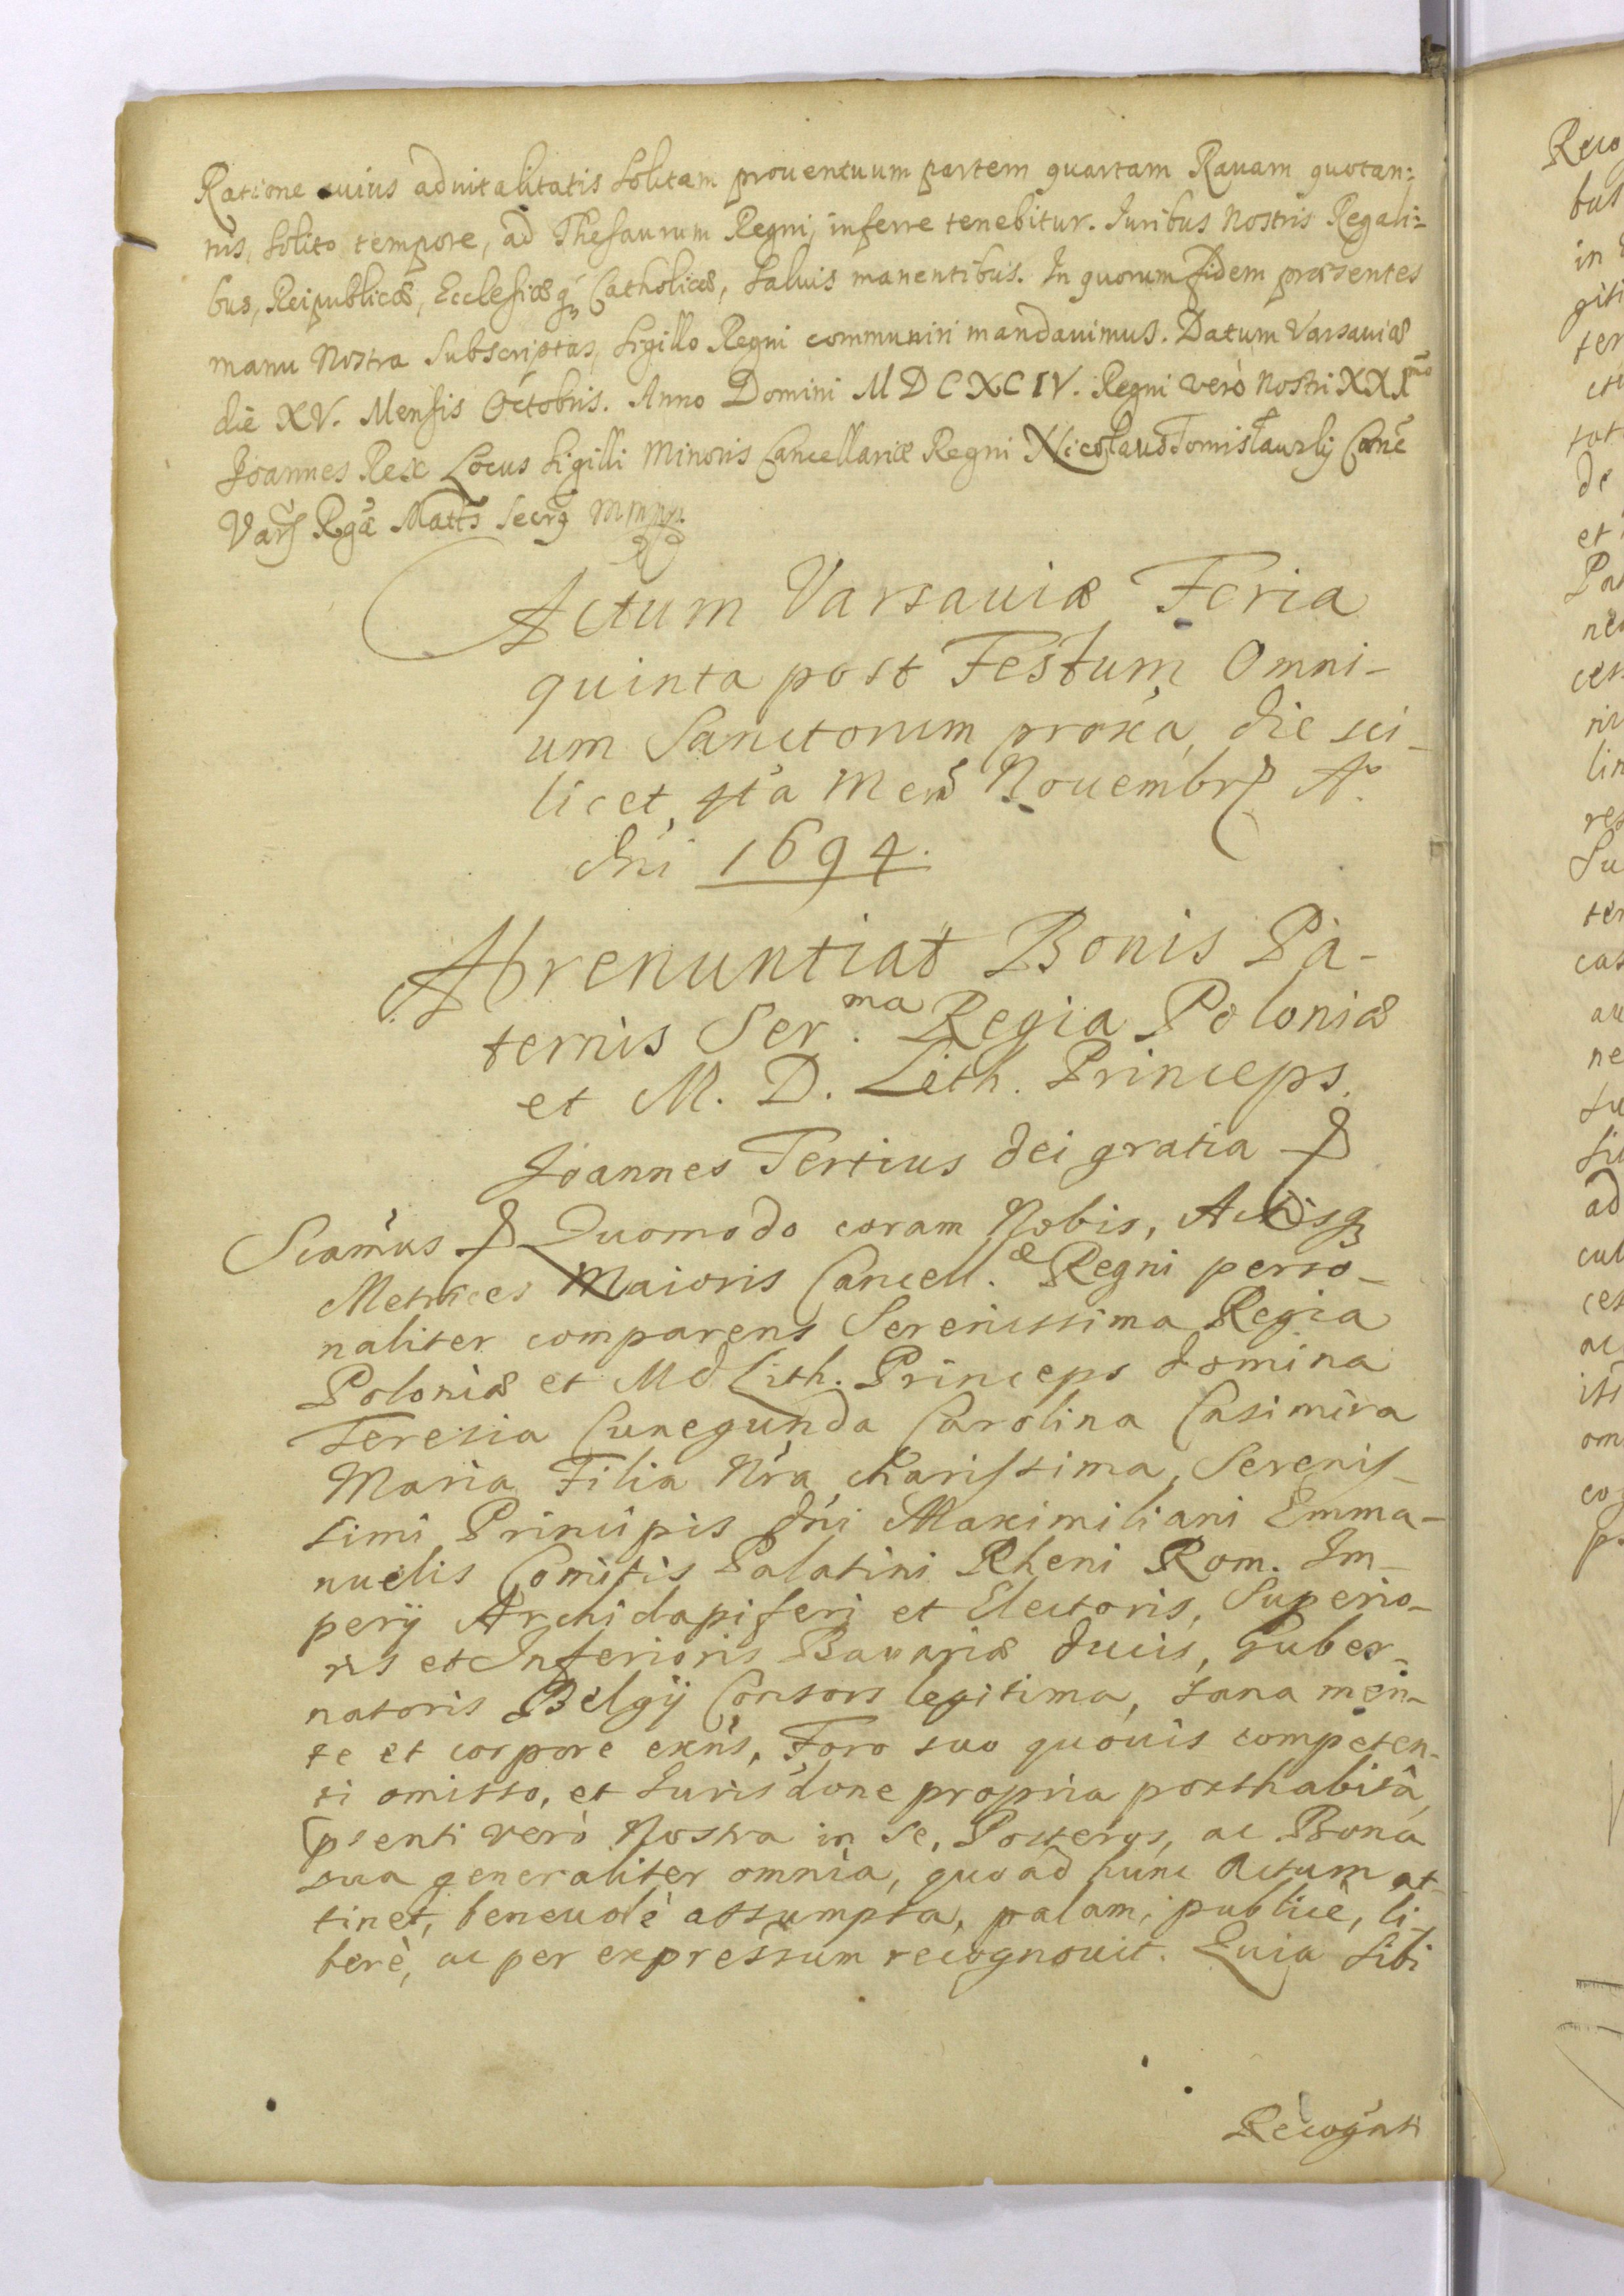 Ratione cuius aduitalitatis solitam prouentuum partem quartam Rauam quotan:
nis, solito tempore, ad Thesaurum Regni, inferre tenebitur. Iuribus Nostris Regali:
bus, Reipublicæ, Ecclesiæq Catholicæ, saluis manentibus. In quorum fidem præsentes
manu Nostra Subscriptas, Sigillo Regni communiri mandauimus. Datum Varsauiæ
die XV. Mensis Octobris. Anno Domini MDCXCIV. Regni verò Nostri XXI mo
Joannes Rex Locus Sigilli Minoris Cancellariæ Regni Nicolaus Tomisławsky Canc
Vars Rgæ Mattis Secrg mmpp.
Actum Varsauiæ Feria
quinta post Festum Omni-
um Sanctorum proxa, die sci-
licet, 4ta Mens Nouembr A.
dni 1694.
Abrenuntiat Bonis Pa-
ternis Ser.ma Regia Poloniæ
et M. D. Lith. Princeps.
Joannes Tertius dei gratia
Sciamus Quomodo coram Nobis, Actisq
Metrices Maioris Cancell.æ Regni perso-
naliter comparens Serenissima Regia
Poloniæ et Md Lith. Princeps domina
Teresia Cunegunda Carolina Casimira
Maria Filia Nra charissima, Serenis-
simi Principis dni Maximiliani Emma-
nuelis Comitis Palatini Rheni Rom. Im-
perij Archidapiferi et Electoris, Superio-
ris et Inferioris Bauariæ ducis, Guber-
natoris Belgij Consors legitima, sana men-
te et corpore exns, Foro suo quouis competen-
ti omisso, et Jurisdone propria posthabitâ,
psenti verò Nostra in se, Posterqs, ac Bona
sua generaliter omnia, quoad hunc Actum at-
tinet, beneuolè assumpta, palam, publicè, li-
berè, ac per expressum recognouit. Quia Sibi
Recognti
Reco
bus
in
giti
ter
de
et
Pa
lin
res
Su
ter
cas
ne
ad
cul
om